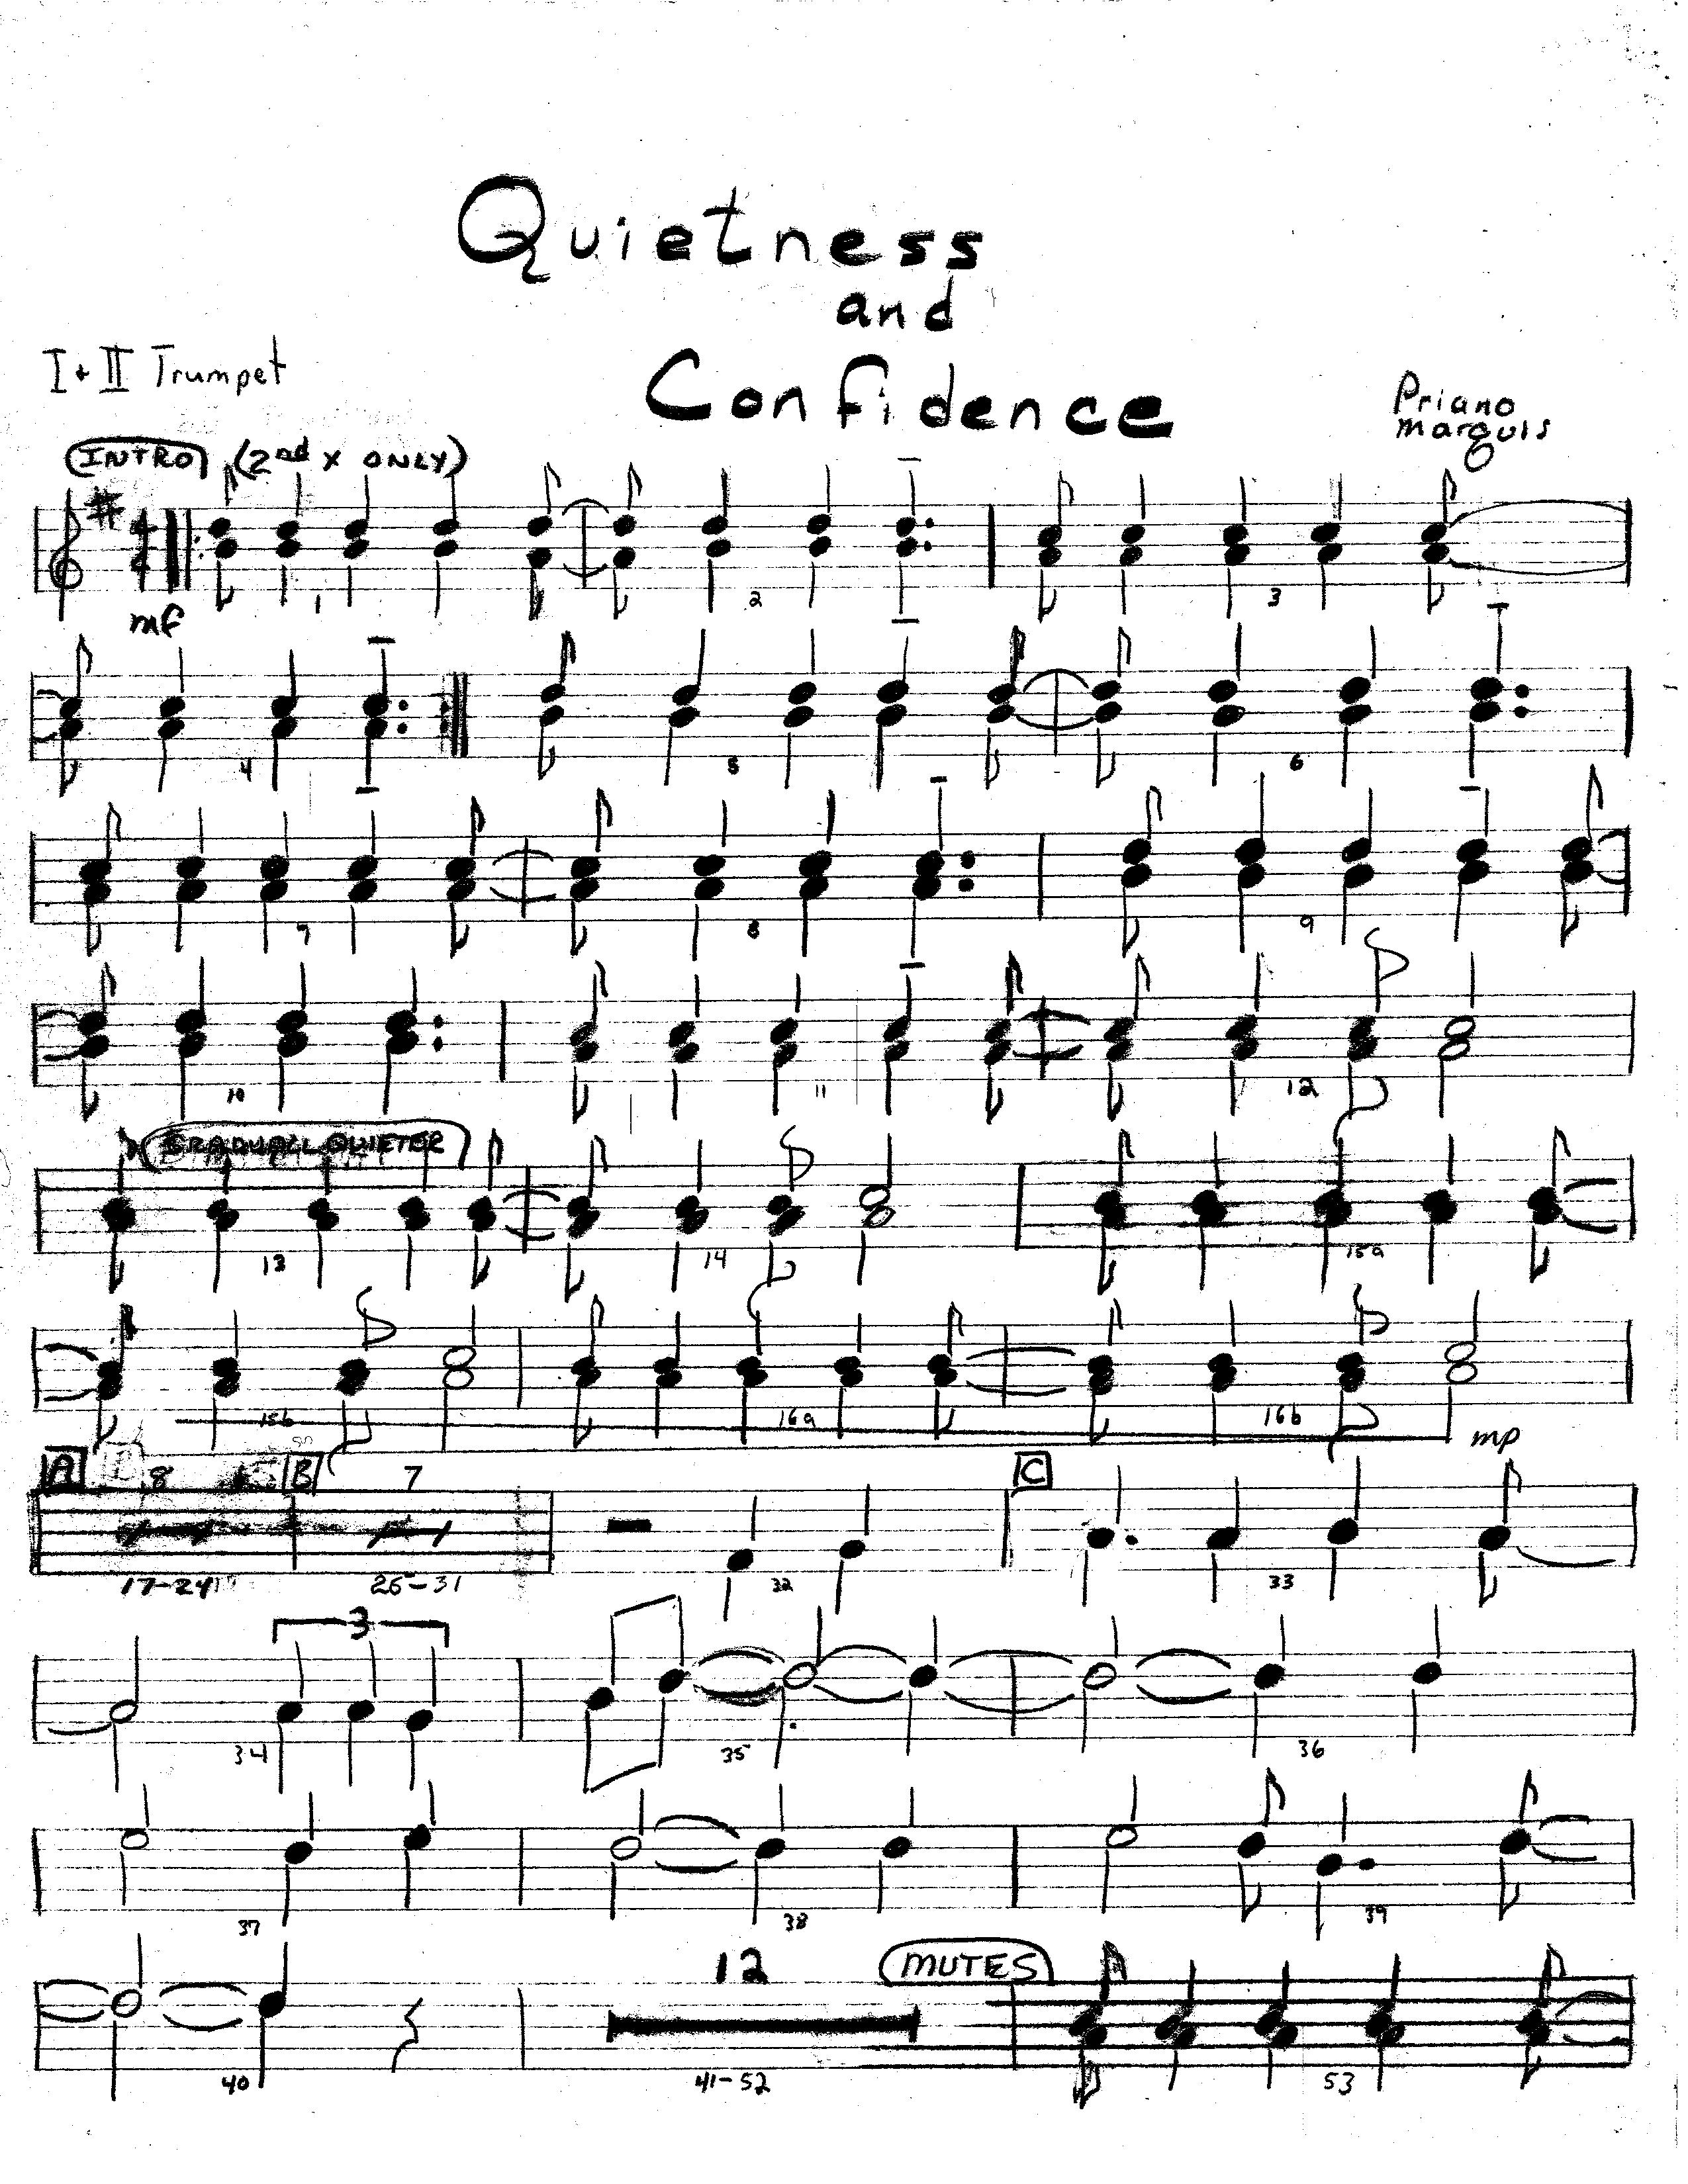 Quietness
and
Confidence
I + II Trumpet
Priano
Marquis
INTRO (2nd x ONLY)
mf
1 2 3
4 5 6
7 8 9
10 11 12
GRADUALL QUIETER
13 14 15a
15b 16a 16b
mp
A 8 B 7 C
17-24 25-31 32 33
3
34 35 36
37 38 39
12 MUTES
40 41-52 53